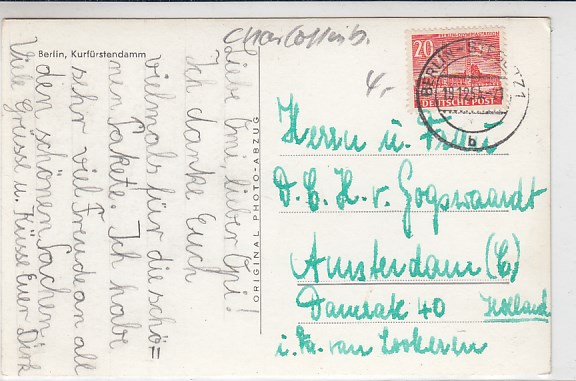 Berlin, Kurfürstendamm
Charlottenb.
4.-
Liebe Omi! lieber Opi!
Ich danke Euch
vielmals für die schö=
nen Pakete. Ich habe
sehr viel Freude an all
den schönen Sachen
Viele Grüsse u. Küsse Euer Dirk
ORIGINAL PHOTO-ABZUG
20
DEUTSCHE POST
BERLIN-
b
Herrn u. Frau
D. C. H. v. Gogswaardt
Amsterdam (C)
Damrak 40 Holland
i. Fa. van Lookeren